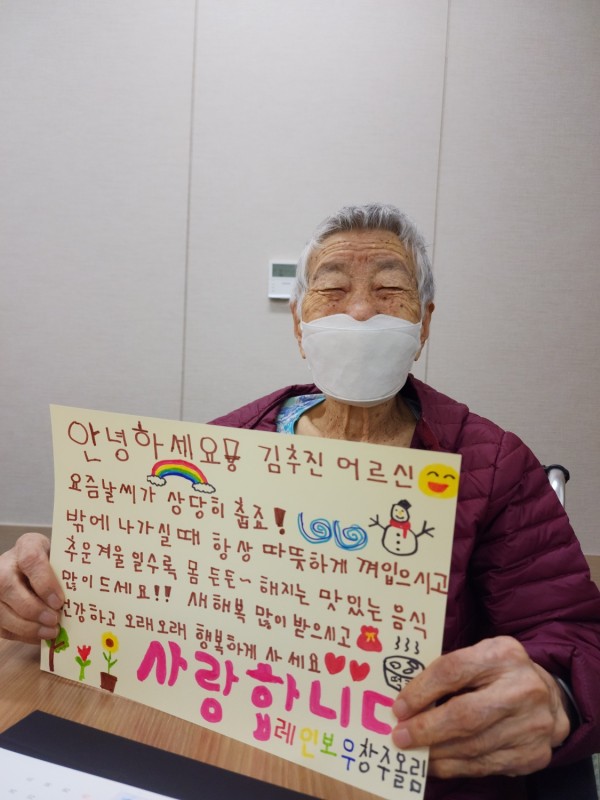 안녕하세요!! 김추진 어르신
요즘날씨가 상당히 춥죠!
밖에 나가실때 항상 따뜻하게 껴입으시고
추운겨울 일수록 몸 든든~해지는 맛있는 음식
많이 드세요!! 새해복 많이받으시고
건강하고 오래오래 행복하게 사세요
사랑합니다
레인보우창주올림